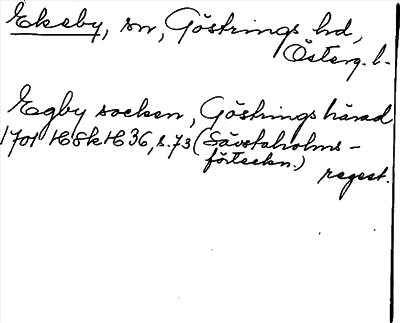 Ekeby, sn, Göstrings hd,
Österg. l.
Egby socken, Göstrings härad
1701 HSkH 36, s. 73 (Sävstaholms-
förteckn.)
regest.